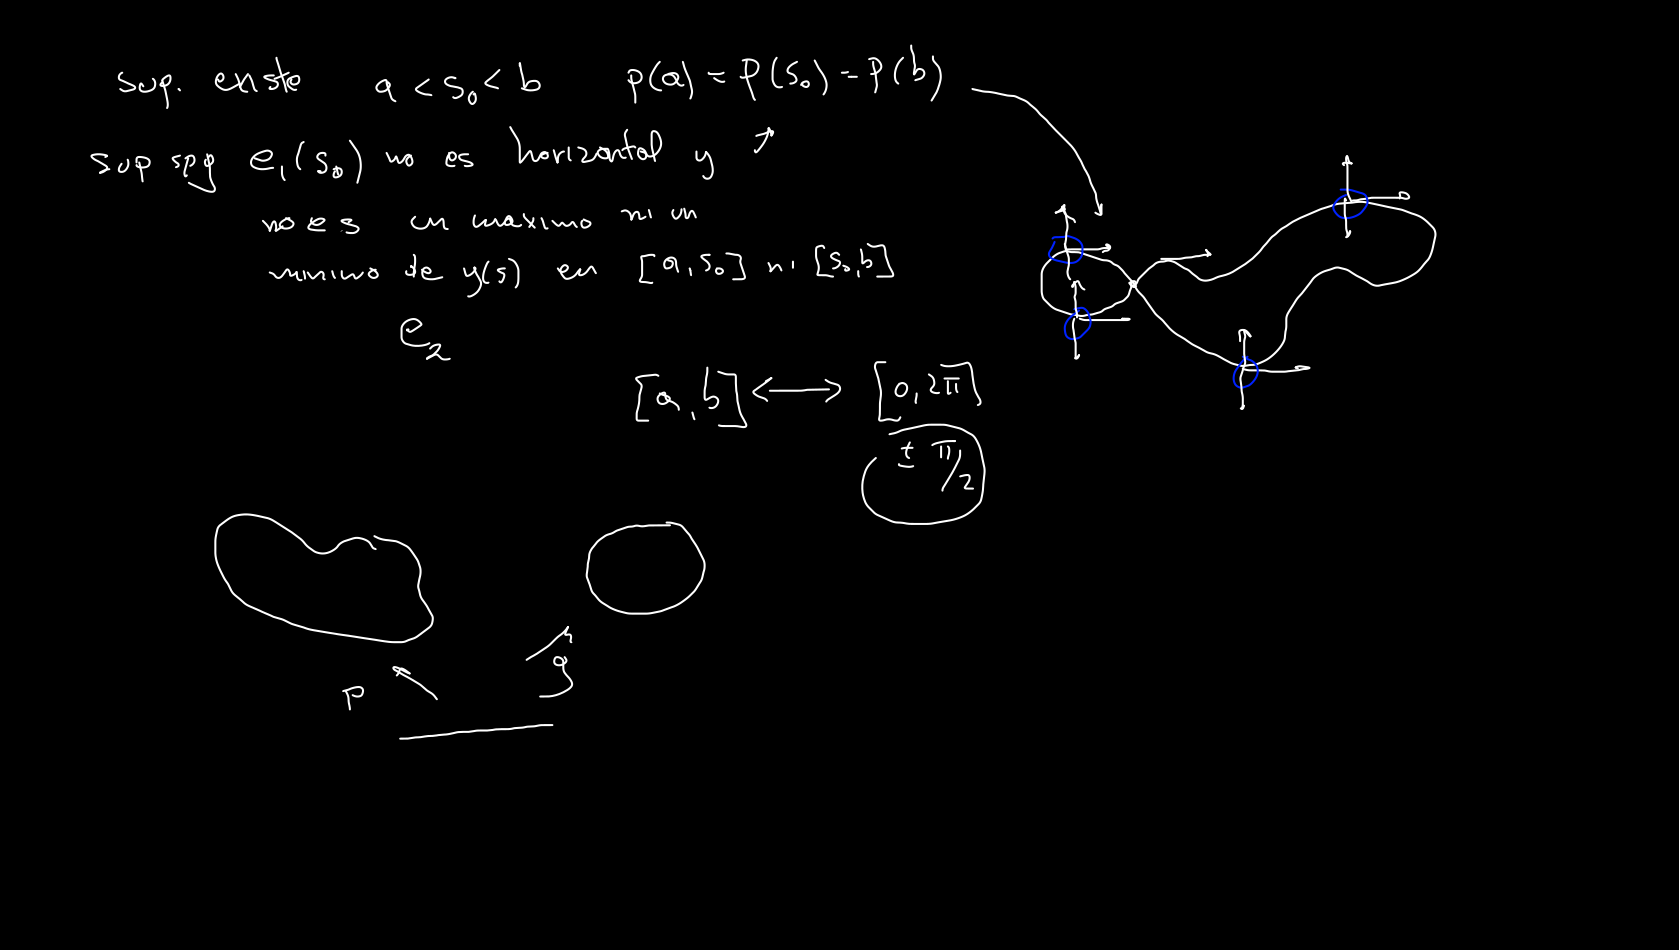 sup. existe a < s₀ < b p(a) = p(s₀) = p(b)
sup spg e₁(s₀) no es horizontal y
no es un maximo ni un
minimo de y(s) en [a, s₀] ni [s₀, b]
e₂
[a, b] ⟷ [0, 2π]
± π/2
p g